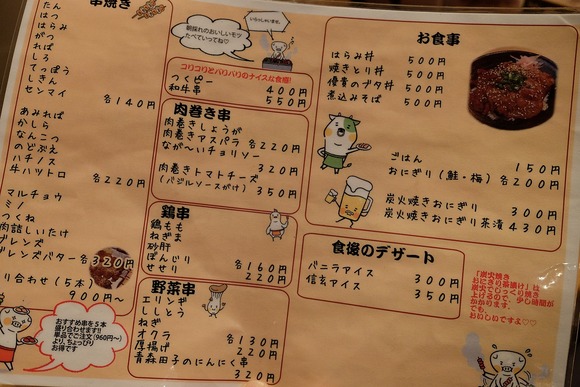 串焼き
たん
はつ
はらみ
がつ
ればー
しろ
てっぽう
しきん
センマイ
各140円
あみれば
かしら
なんこつ
のどぶえ
ハチノス
牛ハツトロ
各220円
マルチョウ
ミノ
つくね
肉詰しいたけ
ブレンズ
ブレンズバター 各320円
盛り合わせ(5本)
900円〜
おすすめ串を5本
盛り合わせます!!
単品でご注文(960円〜)
より、ちょっぴり
お得です
いらっしゃいませ。
朝採れのおいしいモツ
たべていってね♡
コリコリとバリバリのナイスな食感!
つくピー 400円
和牛串 550円
肉巻き串
肉巻きしょうが
肉巻きアスパラ 各220円
なが〜いチョリソー
320円
肉巻きトマトチーズ
(バジルソースがけ) 350円
鶏串
鶏もも
ねぎま
砂肝
ぼんじり 各160円
せせり 220円
野菜串
エリンギ
ししとう
ねぎ
オクラ 各130円
厚揚げ 220円
青森田子のにんにく串
320円
お食事
はらみ丼 500円
焼きとり丼 500円
優貴のブタ丼 500円
煮込みそば 500円
ごはん 150円
おにぎり(鮭・梅) 各200円
炭火焼きおにぎり 300円
炭火焼きおにぎり茶漬 430円
食後のデザート
バニラアイス 300円
信玄アイス 350円
「炭火焼き
おにぎり茶漬け」は
炭火でじっくり焼き
上げるので、少し時間が
かかります。
でも、
おいしいですよ♡♡